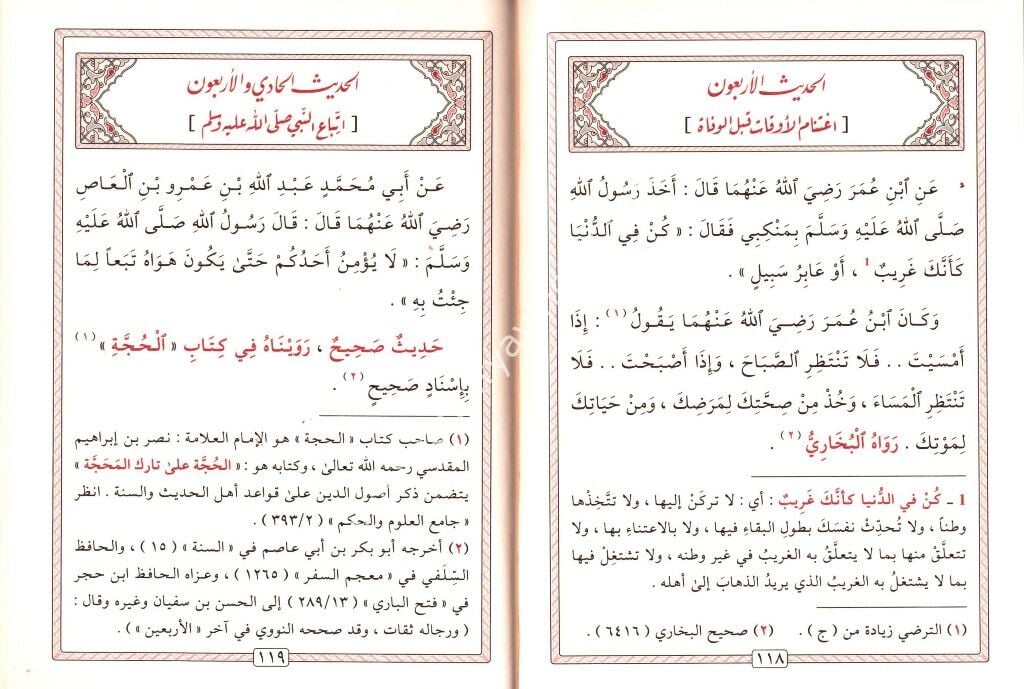 الحديث الأربعون
[ اغتنام الأوقات قبل الوفاة ]
عَنِ ٱبْنِ عُمَرَ رَضِيَ ٱللهُ عَنْهُمَا قَالَ : أَخَذَ رَسُولُ ٱللهِ
صَلَّى ٱللهُ عَلَيْهِ وَسَلَّمَ بِمَنْكِبِي فَقَالَ : « كُنْ فِي ٱلدُّنْيَا
كَأَنَّكَ غَرِيبٌ 1 ، أَوْ عَابِرُ سَبِيلٍ » .
وَكَانَ ٱبْنُ عُمَرَ رَضِيَ ٱللهُ عَنْهُمَا يَقُولُ (١) : إِذَا
أَمْسَيْتَ . . فَلَا تَنْتَظِرِ ٱلصَّبَاحَ ، وَإِذَا أَصْبَحْتَ . . فَلَا
تَنْتَظِرِ ٱلْمَسَاءَ ، وَخُذْ مِنْ صِحَّتِكَ لِمَرَضِكَ ، وَمِنْ حَيَاتِكَ
لِمَوْتِكَ . رَوَاهُ ٱلْبُخَارِيُّ (٢) .
1 ـ كُنْ في الدُّنيا كأنَّكَ غَرِيبٌ : أي : لا تركَنْ إليها ، ولا تتَّخِذْها
وطناً ، ولا تُحدِّثْ نفسَكَ بطولِ البقاءِ فيها ، ولا بالاعتناءِ بها ، ولا
تتعلَّقْ منها بما لا يتعلَّقُ به الغريبُ في غير وطنه ، ولا تشتغِلْ فيها
بما لا يشتغلُ به الغريبُ الذي يريدُ الذهابَ إلىٰ أهله .
(١) الترضي زيادة من ( ج ) . (٢) صحيح البخاري ( ٦٤١٦ ) .
١١٨
الحديث الحادي والأربعون
[ اتباع النبي صلى الله عليه وسلم ]
عَنْ أَبِي مُحَمَّدٍ عَبْدِ ٱللهِ بْنِ عَمْرِو بْنِ ٱلْعَاصِ
رَضِيَ ٱللهُ عَنْهُمَا قَالَ : قَالَ رَسُولُ ٱللهِ صَلَّى ٱللهُ عَلَيْهِ
وَسَلَّمَ : « لَا يُؤْمِنُ أَحَدُكُمْ حَتَّىٰ يَكُونَ هَوَاهُ تَبَعاً لِمَا
جِئْتُ بِهِ » .
حَدِيثٌ صَحِيحٌ ، رَوَيْنَاهُ فِي كِتَابِ « ٱلْحُجَّةِ » (١)
بِإِسْنَادٍ صَحِيحٍ (٢) .
(١) صاحب كتاب « الحجة » هو الإمام العلامة : نصر بن إبراهيم
المقدسي رحمه الله تعالىٰ ، وكتابه هو : « الحُجَّة علىٰ تارك المَحَجَّة »
يتضمن ذكر أصول الدين علىٰ قواعد أهل الحديث والسنة . انظر
« جامع العلوم والحكم » ( ٣٩٣/٢ ) .
(٢) أخرجه أبو بكر بن أبي عاصم في « السنة » ( ١٥ ) ، والحافظ
السِّلَفي في « معجم السفر » ( ١٢٦٥ ) ، وعزاه الحافظ ابن حجر
في « فتح الباري » ( ٢٨٩/١٣ ) إلى الحسن بن سفيان وغيره وقال :
( ورجاله ثقات ، وقد صححه النووي في آخر « الأربعين » ) .
١١٩